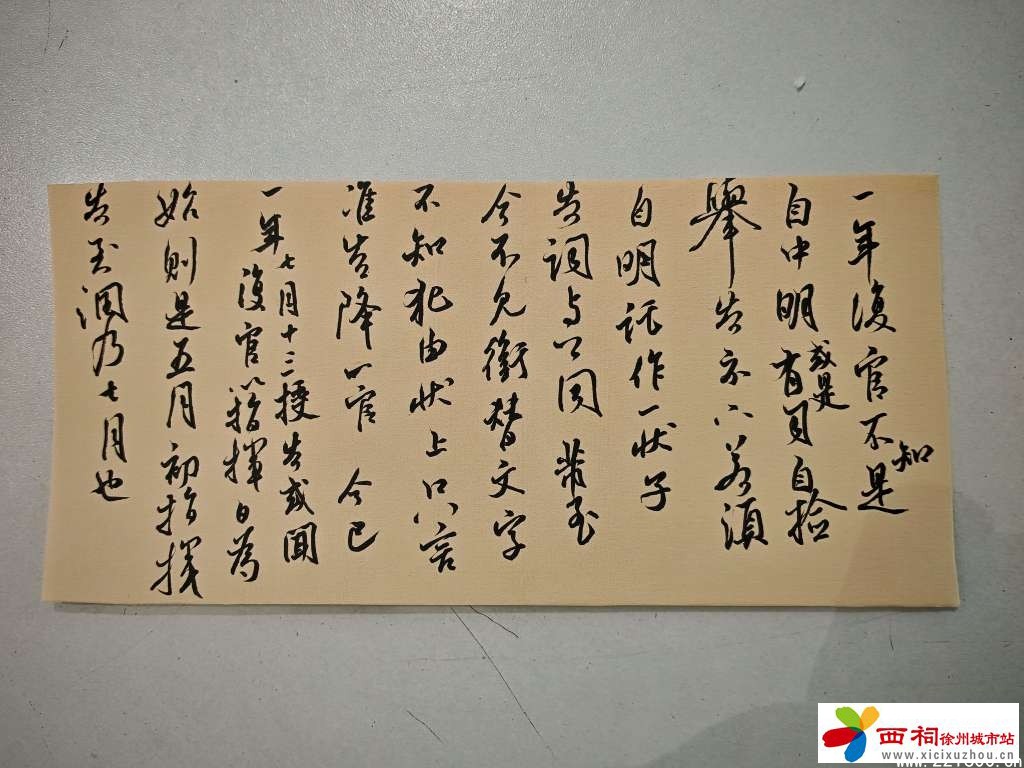 一年復官不知是
自申明或是有司自檢
舉告示下若須
自明託作一狀子
告詞与公同
今不見衝替文字
不知犯由狀上只言
准告降一官 今已
一年七月十三授告或聞
復官以指揮日為
始則是五月初指揮
告至潤乃七月也
西祠徐州城市站
www.xicixuzhou.cn